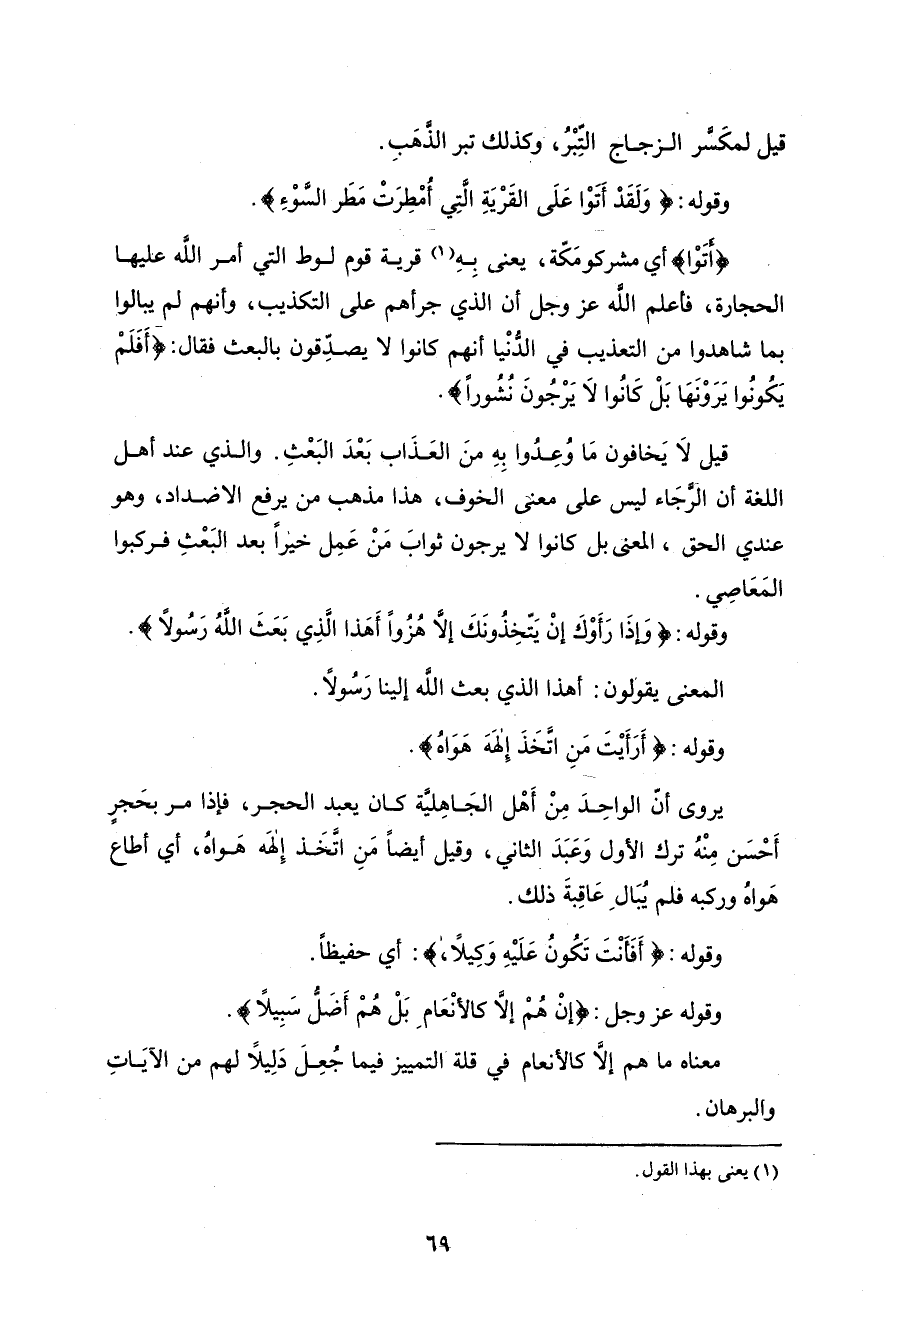 قيل لمكَسَّر الـزجـاج التِّبْرُ، وكذلك تبر الذَّهَبِ.
وقوله: ﴿ وَلَقَدْ أَتَوْا عَلَى القَرْيَةِ الَّتِي أُمْطِرَتْ مَطَر السَّوْءِ ﴾.
﴿أَتَوْا﴾ أي مشركو مَكّة، يعنى بِـهِ(١) قريـة قوم لـوط التي أمـر اللَّه عليهـا
الحجارة، فأعلم اللَّه عز وجل أن الذي جرأهم على التكذيب، وأنهم لم يبالوا
بما شاهدوا من التعذيب في الدُّنْيا أنهم كانوا لا يصـدِّقون بالبعث فقال: ﴿أَفَلَمْ
يَكُونُوا يَرَوْنَهَا بَلْ كَانُوا لَا يَرْجُونَ نُشُوراً﴾.
قيل لَا يَخافون مَا وُعِـدُوا بِهِ منَ العَـذَاب بَعْدَ البَعْثِ. والـذي عند أهـل
اللغة أن الرَّجَاء ليس على معنى الخوف، هذا مذهب من يرفع الاضـداد، وهو
عندي الحق ، المعنى بل كانوا لا يرجون ثوابَ مَنْ عَمِل خيْراً بعد البَعْثِ فـركبوا
المَعَاصِي.
وقوله: ﴿ وَإِذَا رَأَوْكَ إِنْ يَتّخِذُونَكَ إِلَّا هُزُواً أَهَذا الَّذِي بَعَثَ اللَّهُ رَسُولاً ﴾.
المعنى يقولون: أهذا الذي بعث اللَّه إلينا رَسُولاً.
وقوله : ﴿ أَرَأَيْتَ مَنِ اتَّخَذَ إِلٰهَهُ هَوَاهُ﴾.
يروى أنّ الواحِـدَ مِنْ أَهْل الجَـاهِليَّة كـان يعبد الحجـر، فإذا مـر بحَجرٍ
أَحْسَن مِنْهُ ترك الأول وَعَبَدَ الثاني، وقيل أيضاً مَنِ اتَّخَـذ إِلٰهَه هَـواهُ، أي أطاع
هَواهُ وركبه فلم يُبَالِ عَاقِبةَ ذلك.
وقوله : ﴿ أَفَأَنْتَ تَكُونُ عَلَيْهِ وَكِيلاً،﴾ : أي حفيظاً.
وقوله عز وجل : ﴿إِنْ هُمْ إِلَّا كالأنْعَامِ بَلْ هُمْ أَضَلُّ سَبِيلًا ﴾.
معناه ما هم إلَّا كالأنعام في قلة التمييز فيما جُعِـلَ دَلِيلاً لهم من الآيَـاتِ
والبرهان.
(١) يعنى بهذا القول.
٦٩